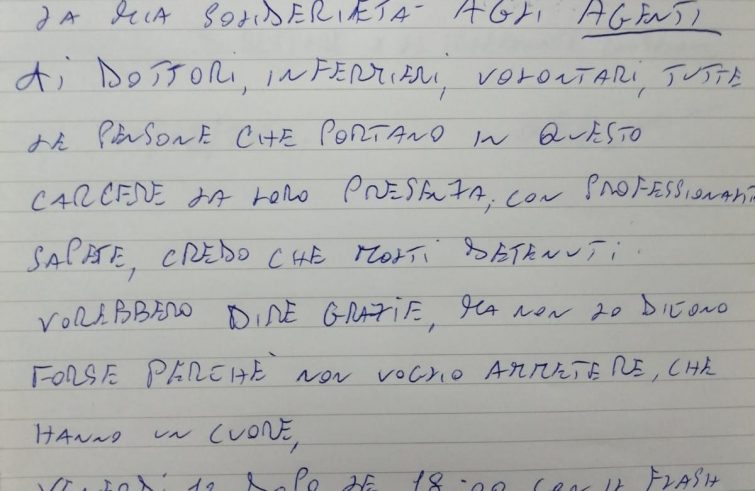 LA MIA SOLIDERIETA AGLI AGENTI
AI DOTTORI, INFERMIERI, VOLONTARI, TUTTE
LE PERSONE CHE PORTANO IN QUESTO
CARCERE LA LORO PRESENZA, CON PROFESSIONALIT
SAPETE, CREDO CHE MOLTI DETENUTI.
VOREBBERO DIRE GRAZIE, MA NON LO DICONO
FORSE PERCHÈ NON VOGLIO AMMETERE, CHE
HANNO UN CUORE,
VENERDI 12 DOPO LE 18:00 CON IL FLASH